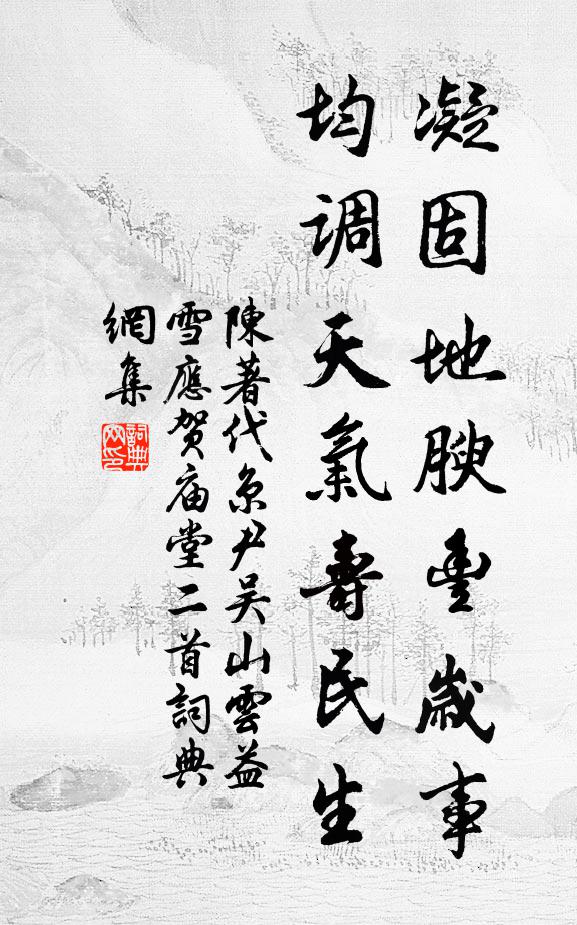 凝固地腴豐歲事
均调天氣壽民生
陳著代京尹吴山雲益
雪應贺庙堂二首詞典
網集
詞典